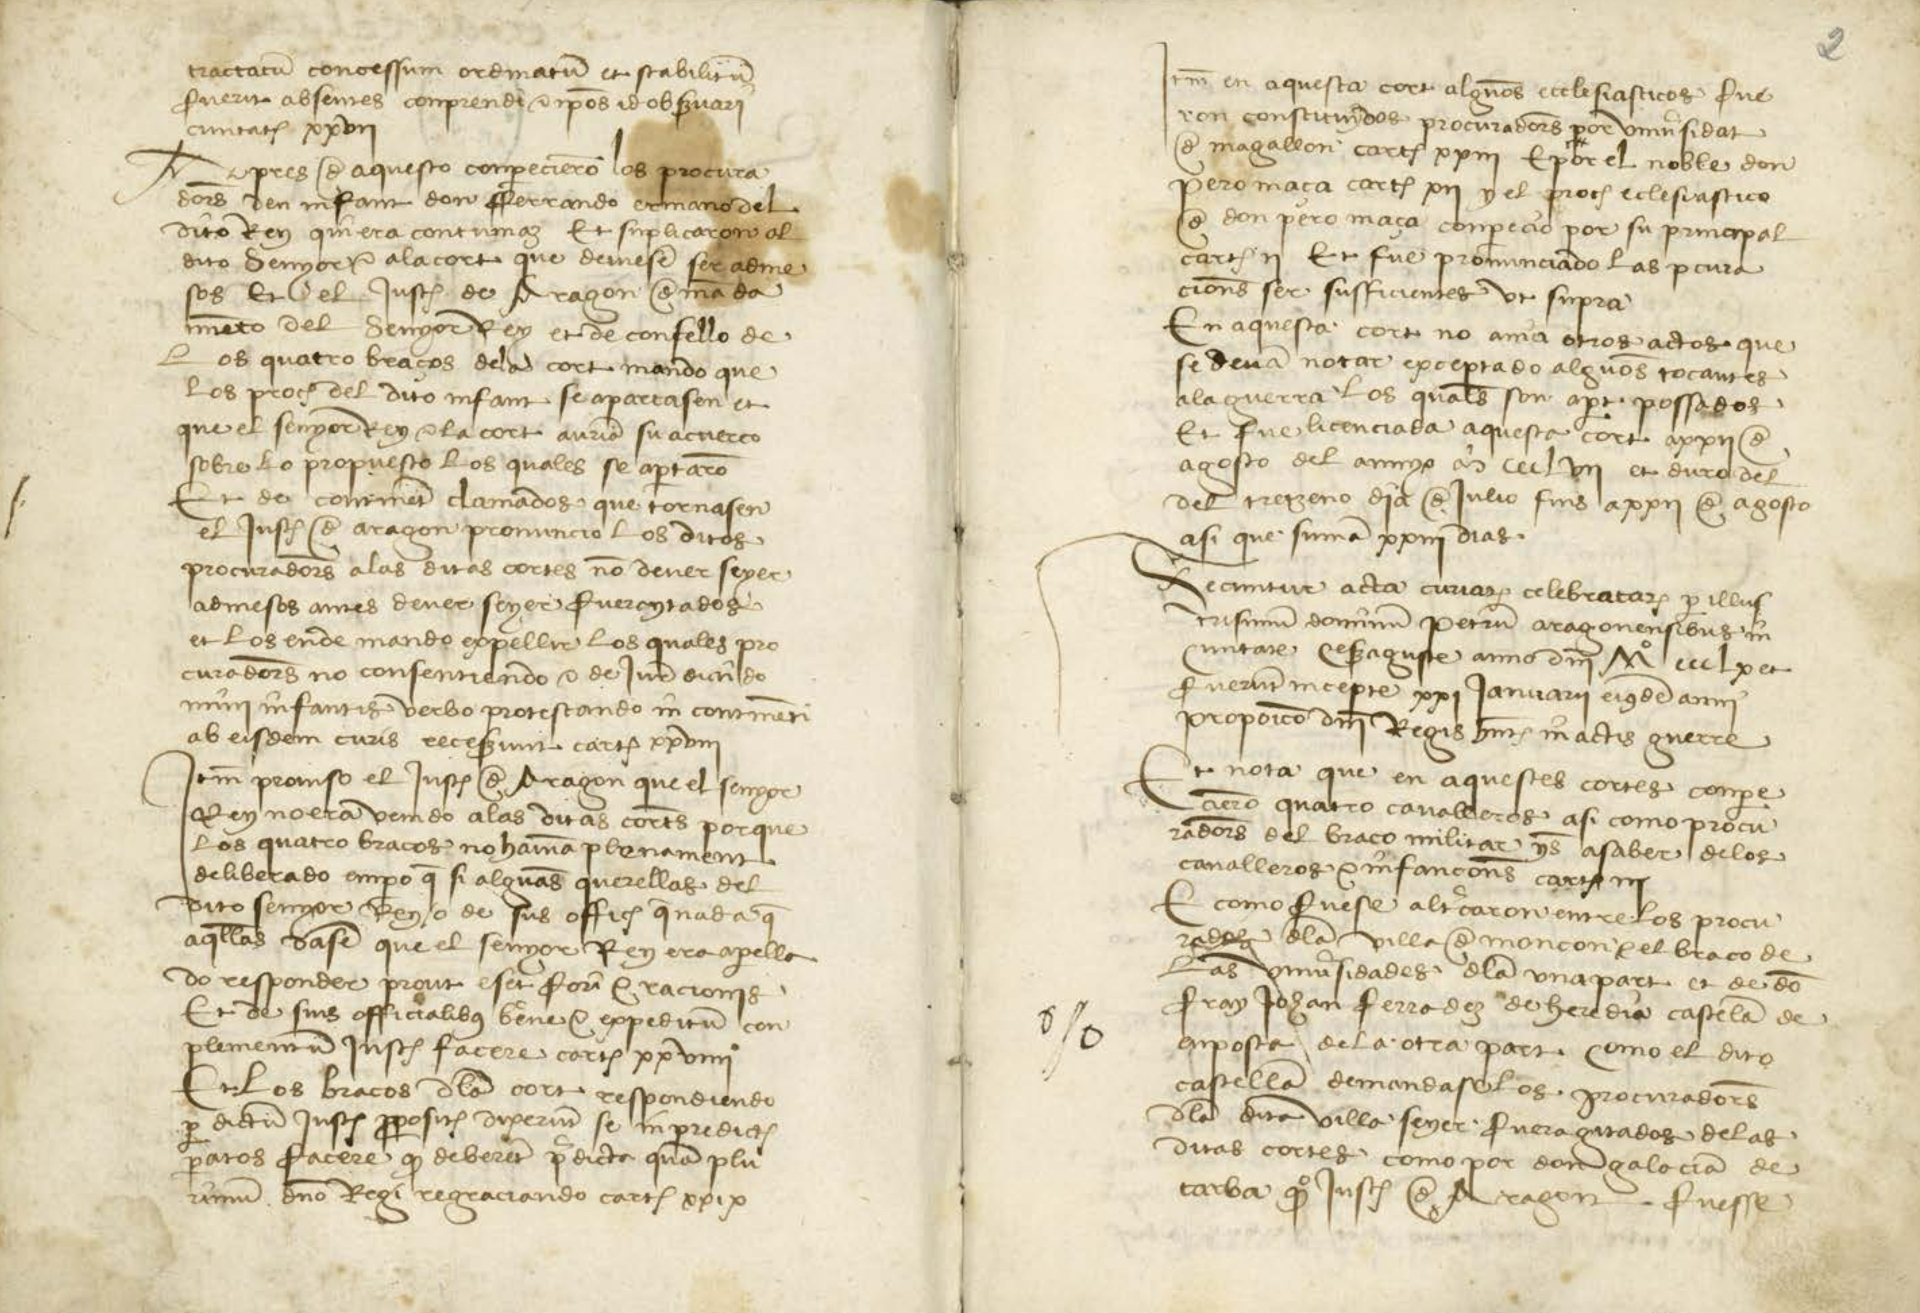 tractatū concessum ordinatū et stabilitū
fuerit absentes conprendi τ ip̄os id obs̄uari
cuntatꝭ xxvii
Apres đ aquesto conpecierō los procura
dōrs den infant don fferrando ermano del
dito Rey qui era contumaz Et suplicaron al
dito Senyor τ ala cort que deuiesē ser adme
sos Et el Justꝭ de Aragon đ māda
miēto del Senyor Rey et de consello de
Los quatro braços dela cort mando que
Los procꝭ del dito infant se apartasen et
que el senyor Rey τ la cort auriā su acuerço
sobre lo propuesto Los quales se apartarō
Et de continēt clamados que tornasen
el Justꝭ đ aragon pronuncio Los ditos
procuradōrs alas ditas cortes nō deuer seyer
admesos antes deuer seyer fueragytados
et Los ende mando expellir Los quales pro
curadōrs no consentiendo τ de Jur̄
infantis verbo protestando in continēti
ab eisdem curis recess̄unt cartꝭ xxviii
Itm̄ proposo el Justꝭ đ Aragon que el senyor
Rey no era venido alas ditas corts porque
Los quatro braços no hauiā plenament
deliberado enpo q̄ si alguās querellas del
dito senyor Rey o de sus officꝭ q̄
aq̄llas dasē que el senyor Rey era apella
do responder prout eset fori τ racionis
Et de suis officialibꝯ bene τ expeditū con
plementū Justꝭ facere cartꝭ xxviiii
Et Los braços dla cort respondiendo
p dictū Justꝭ propositꝭ dixerūt se in predictꝭ
paratos facere deberēt p̄dicta quā plu
rimū dn̄o Regi regraciando cartꝭ xxix
2
Itm̄ en aquesta cort alguos ecclesiasticos fue
ron constituydos procuradōrs por vniūsidat
đ magallon cartꝭ xxiii E por el noble don
pero maça cartꝭ xii y el procꝭ eclesiastico
đ don pero maça conpecio por su principal
cartꝭ ii Et fue pronunciado las pcura
cions ser sufficientes vt supra
En aquesta cort no auia otros actos que
se deuā notar exceptado alguos tocantes
ala guerra Los quals son apt possados
Et fue licenciada aquesta cort a xxii đ
agosto del annyo ccclvii et duro del
del tretzeno dia đ Julio fins a xxii đ agosto
asi que sumā xxiii dias
Secuntur acta curiaꝝ celebrataꝝ p illus
trisimū dominū petrū aragonensibus in
ciuitate cesaraguste anno dni M° ccclx et
fuerūt incepte xxi Januarii eiꝯdē anni
dni Regis in actis guerre
Et nota que en aquestes cortes conpe
cierō quatro caualleros asi como procu
radōrs del braco militar ys asaber delos
caualleros τ infançons cartꝭ iii
E como fuese alt̄caron entre los procu
radōs dla villa đ monçon τ el braco de
Las vniūsidades dla vna part et de dō
fray Johan ferradez de heredia castelā de
enposta dela otra part como el dito
castellā demandase Los procuradōrs
dla dita villa seyer fueragitados delas
ditas cortes como por don galaciā de
tarba q° Justꝭ đ Aragon fuesse